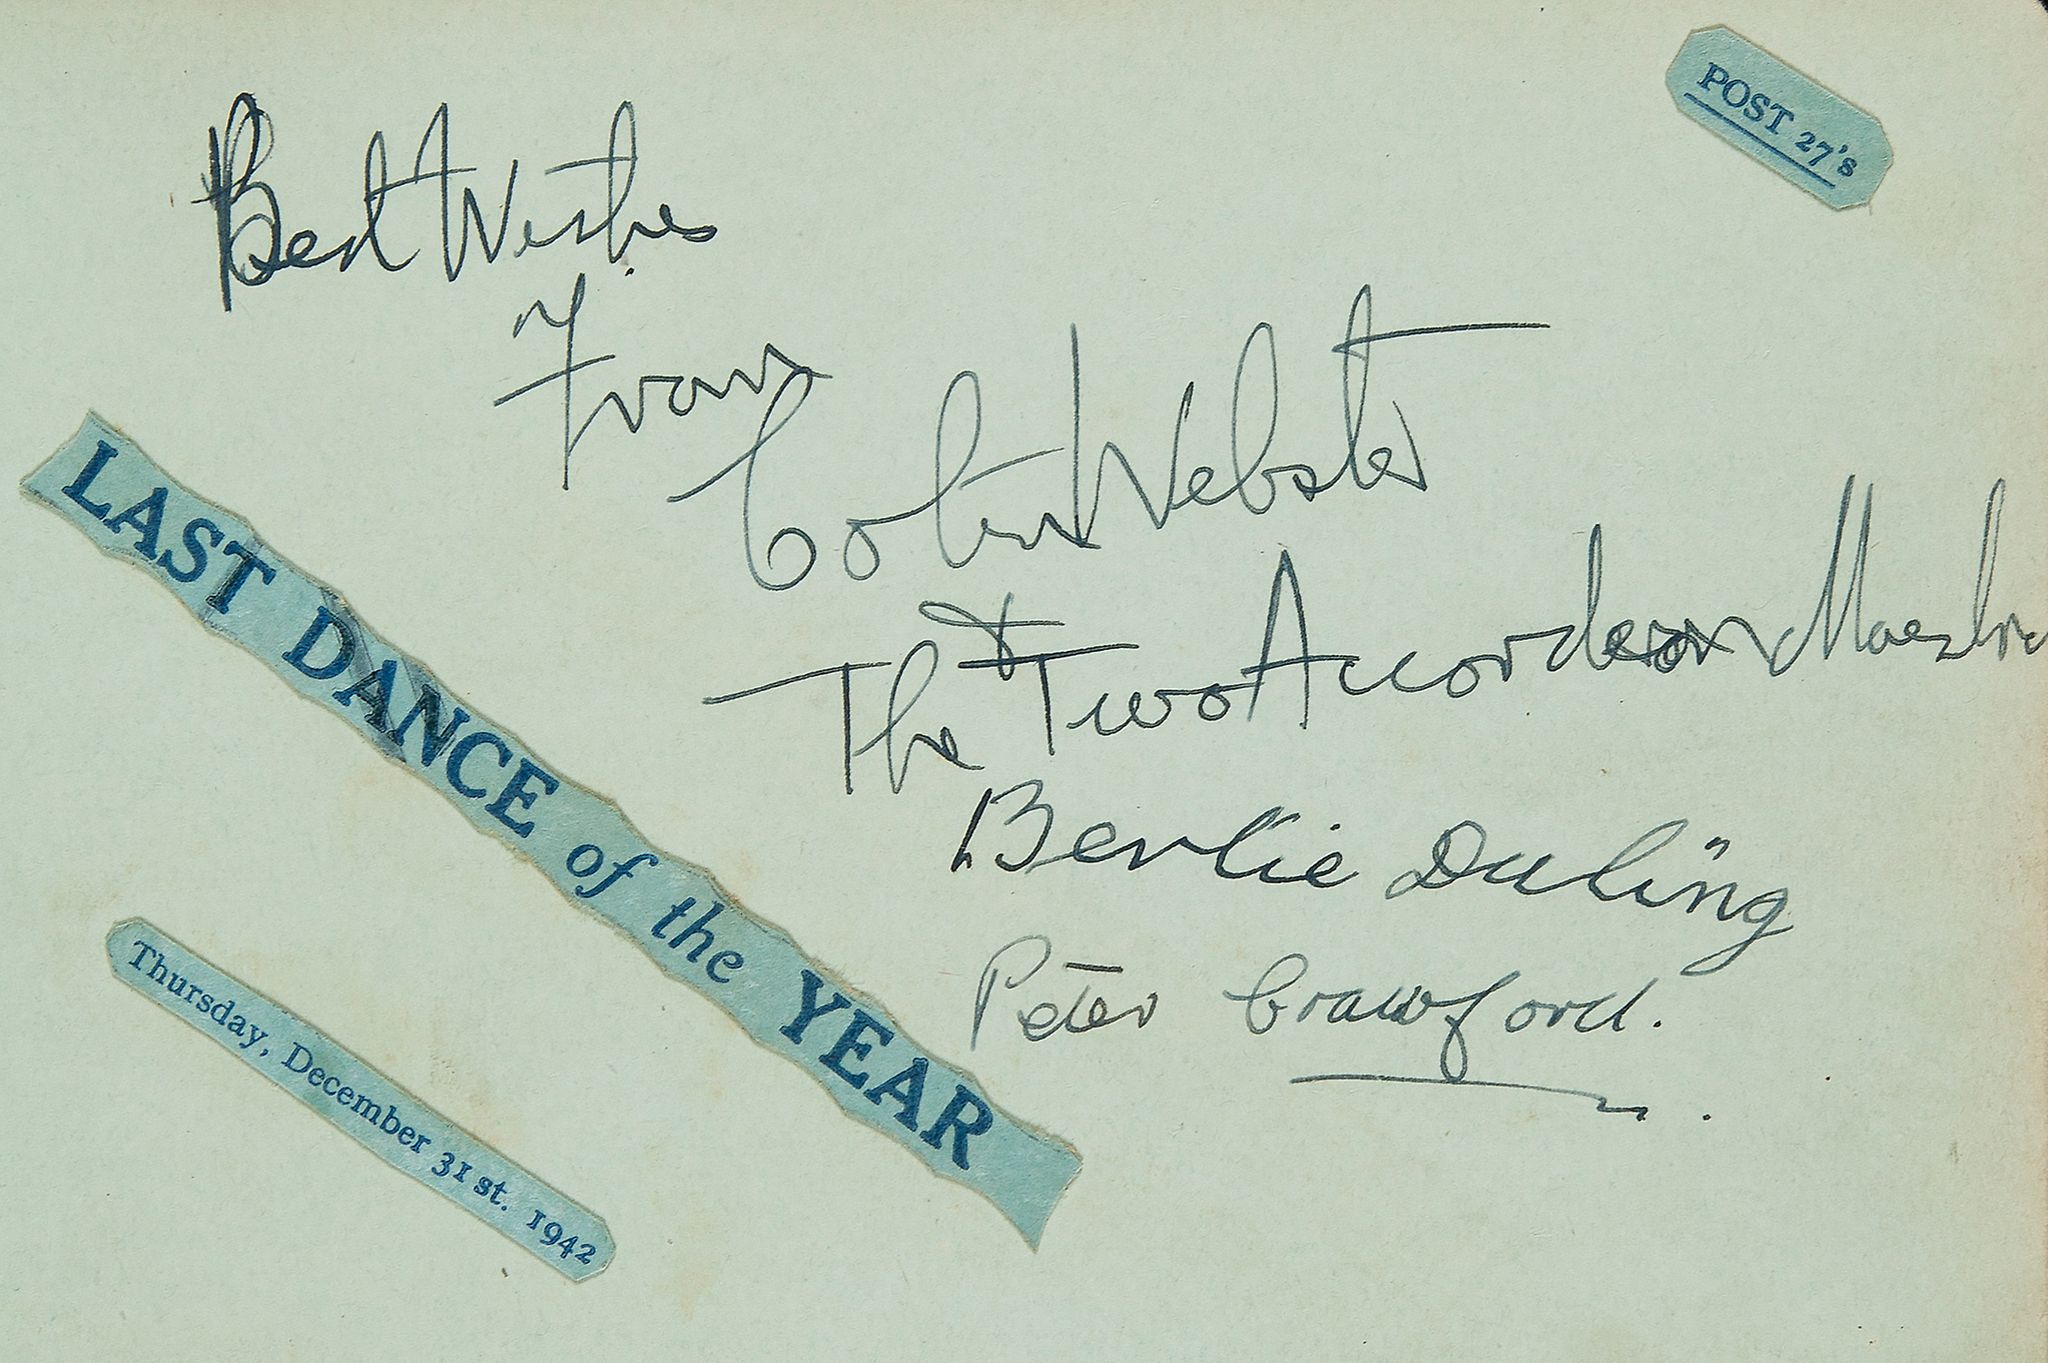 POST 27's
Best Wishes
From
Colin Webster
&
The Two Accordeon Maestros
LAST DANCE of the YEAR
Bertie Duling
Peter Crawford.
Thursday, December 31st. 1942